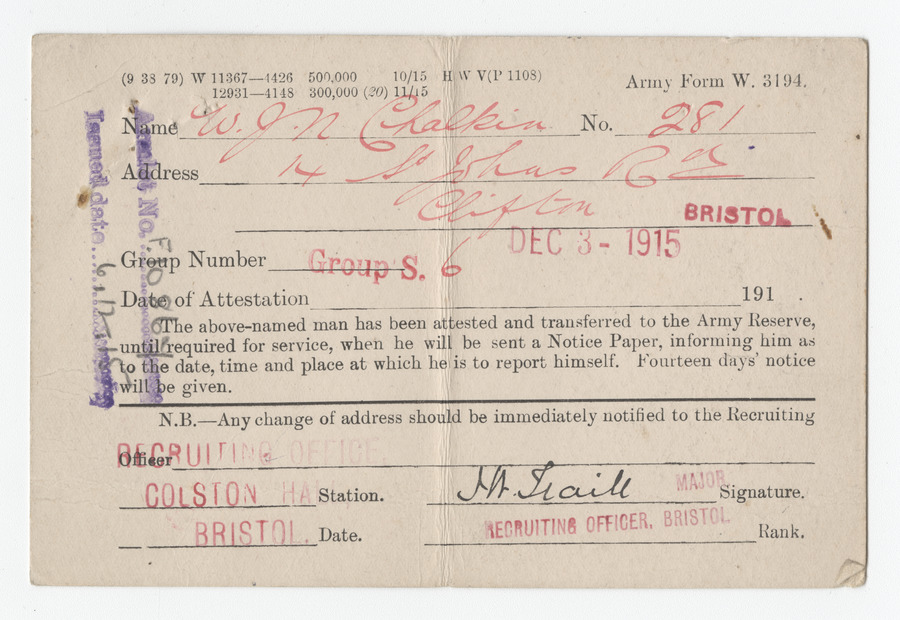 (9 38 79) W 11367—4426 500,000 10/15 H W V(P 1108)
12931—4148 300,000 (20) 11/15
Army Form W. 3194.
Name W. J. N Chalkin No. 281
Address 14 St Johns Rd
Clifton BRISTOL
DEC 3 - 1915
Group Number Group S. 6
Date of Attestation 191 .
The above-named man has been attested and transferred to the Army Reserve,
until required for service, when he will be sent a Notice Paper, informing him as
to the date, time and place at which he is to report himself. Fourteen days' notice
will be given.
N.B.—Any change of address should be immediately notified to the Recruiting
Officer
RECRUITING OFFICE,
COLSTON HA Station.
BRISTOL. Date.
MAJOR Signature.
RECRUITING OFFICER, BRISTOL. Rank.
Armlet No.
Issued date